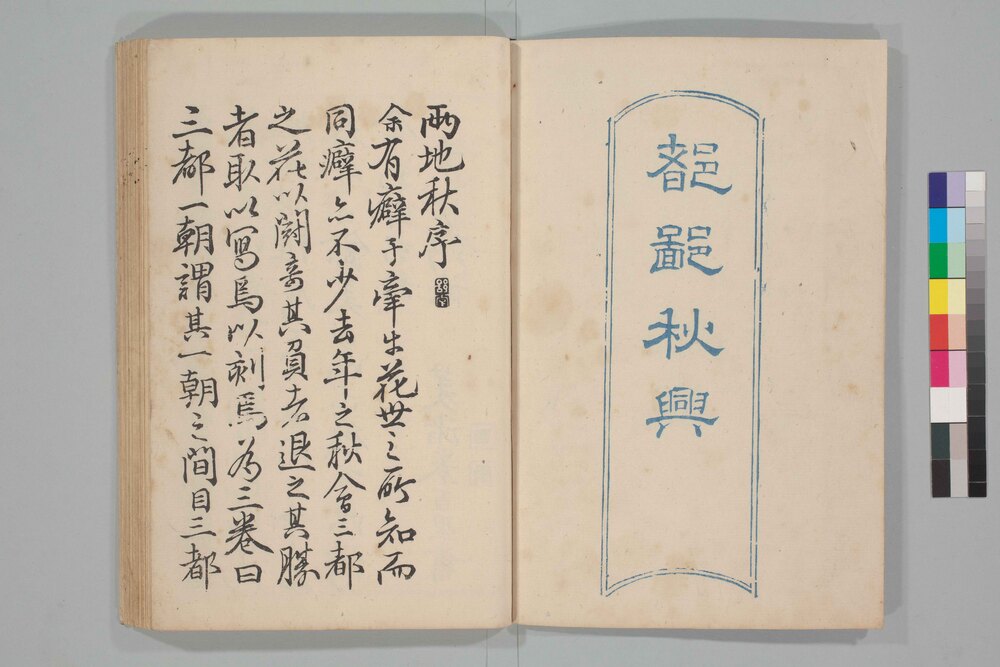 都鄙秋興
兩地秋序
余有癖于牽牛花世之所知而
同癖亦不少去年之秋會三都
之花以鬪奇其負者退之其勝
者取以寫焉以刻焉為三卷曰
三都一朝謂其一朝之間目三都